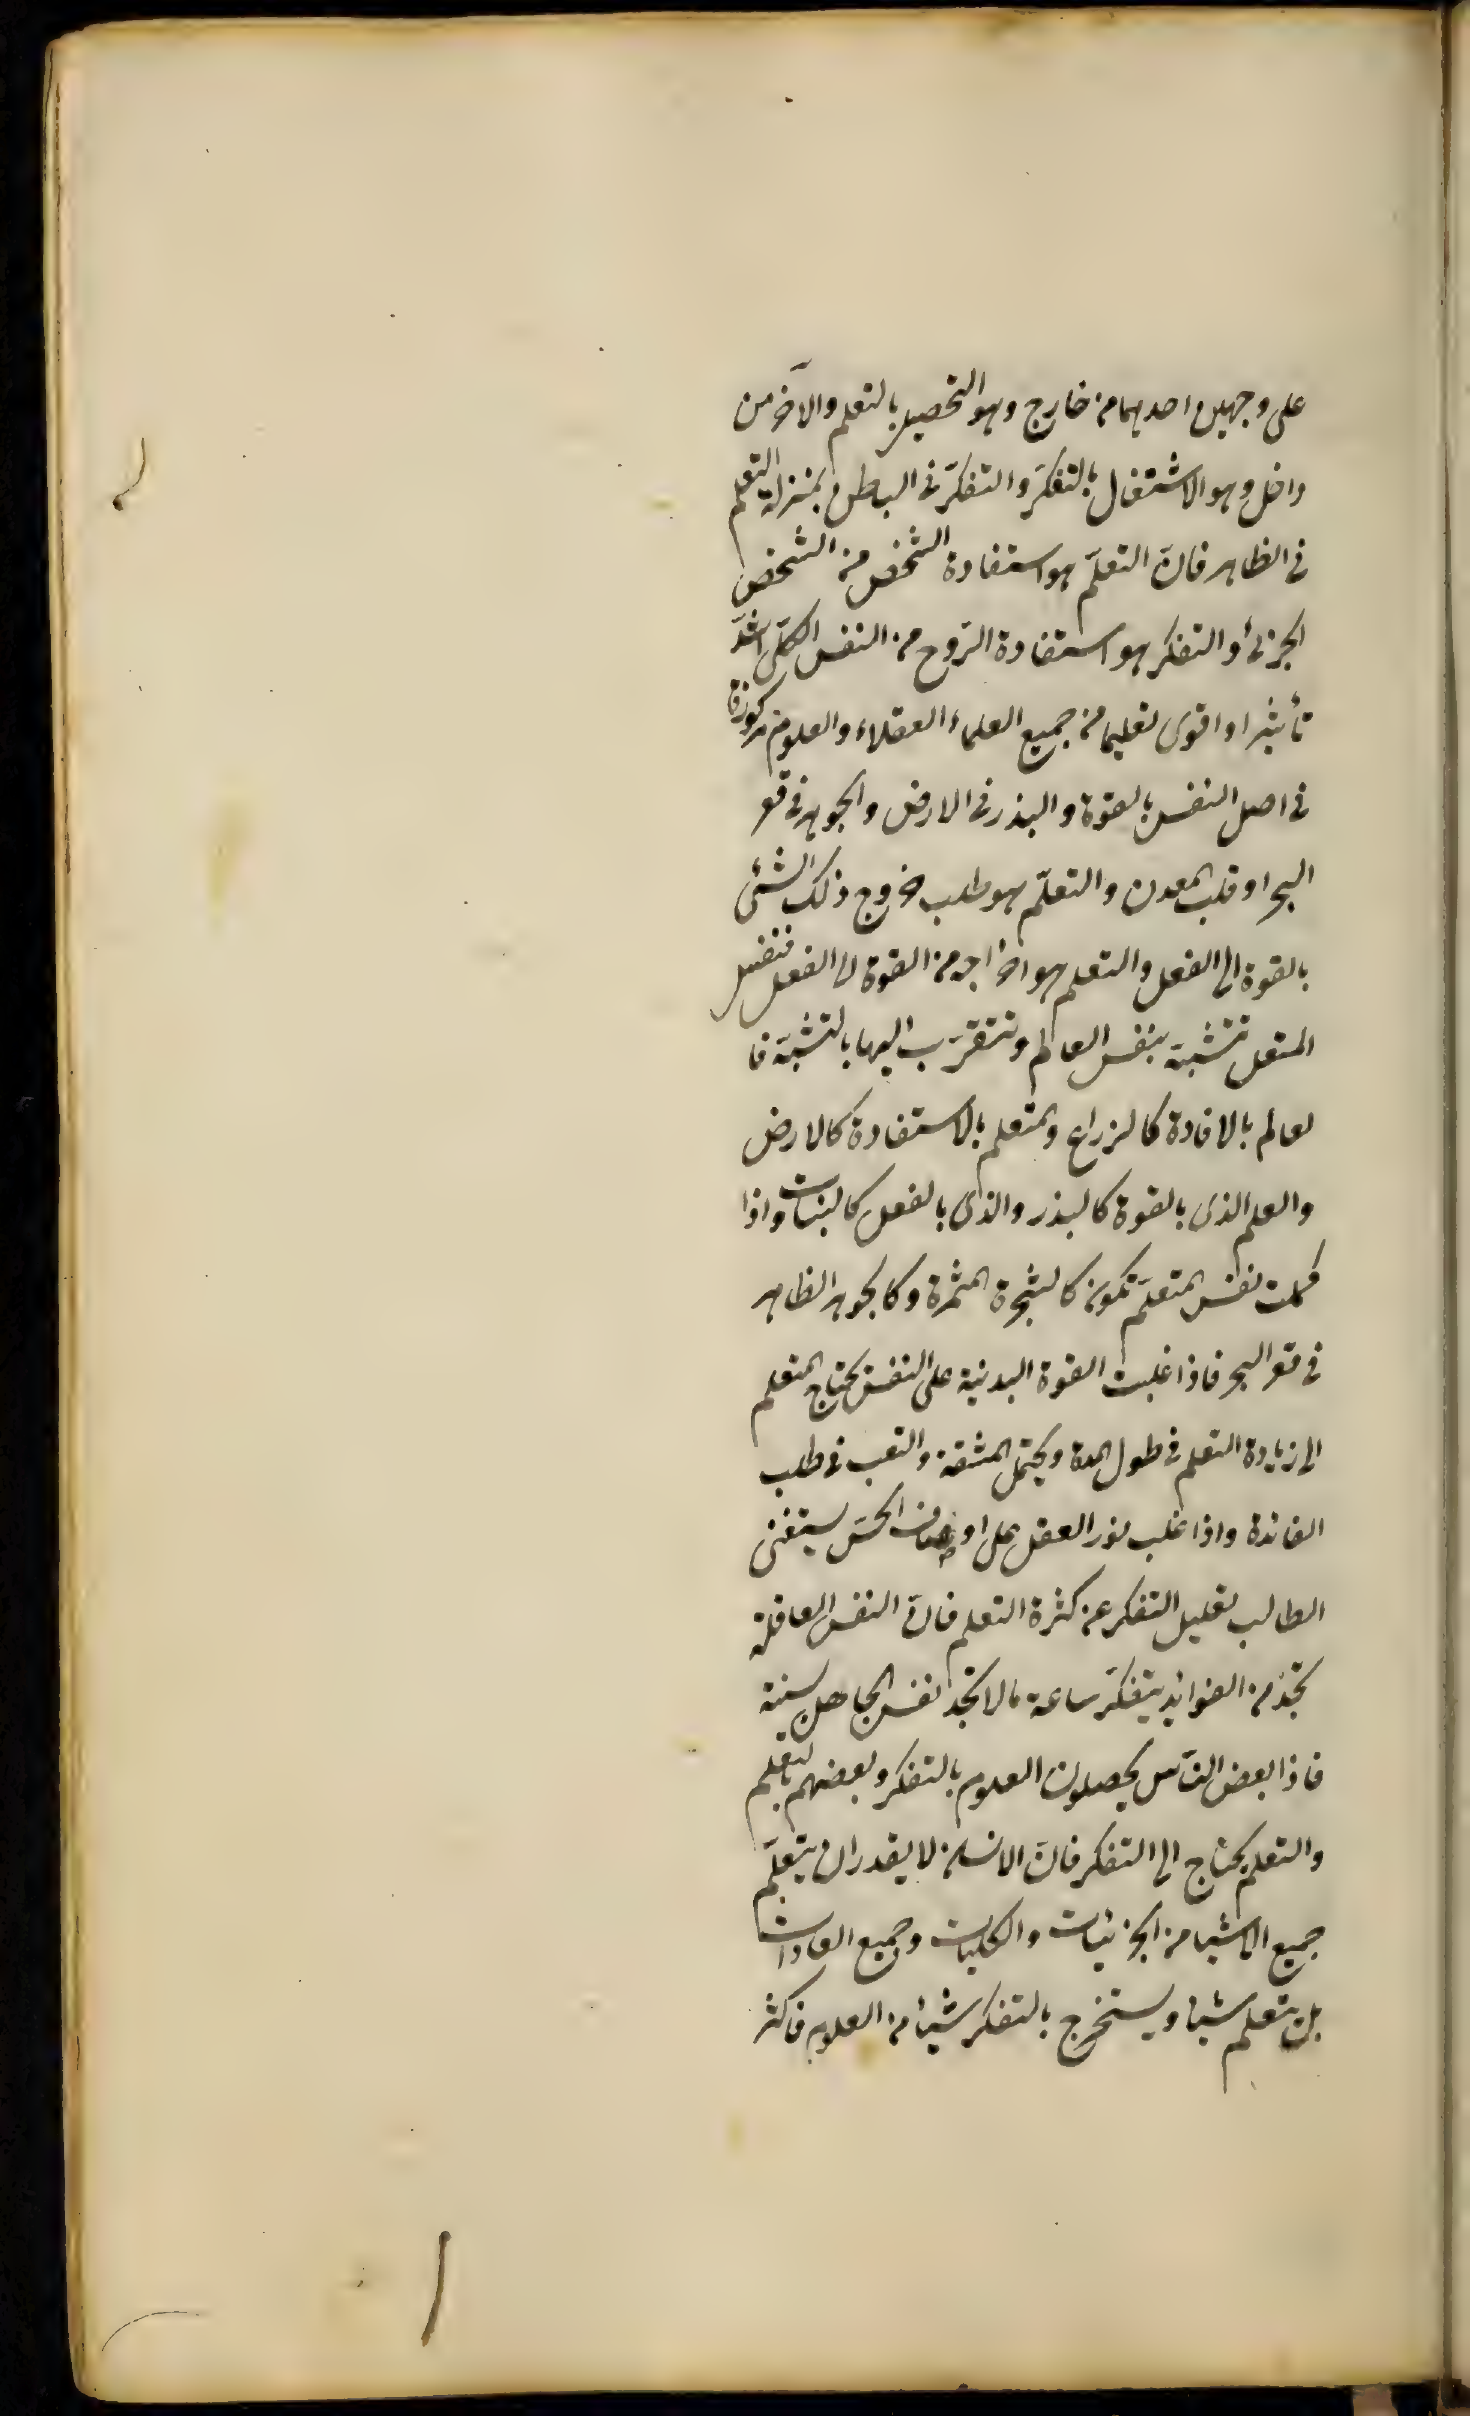 على وجهين احديهما من خارج وهو التحصيل بالتعلم والآخر من
داخل وهو الاشتغال بالتفكر والتفكر فى الباطن بمنزلة التعلم
فى الظاهر فان التعلّم هو استفادة الشخص من الشخص
الجزئى والتفكر هو استفادة الروح من النفس الكلى اشدّ
تأثيرا واقوى تعليما من جميع العلماء العقلاء والعلوم مركوزة
فى اصل النفس بالقوة والبذر فى الارض والجوهر فى قعر
البحر او قلب المعدن والتعلّم هو طلب خروج ذلك الشئى
بالقوة الى الفعل والتعلم هو اخراجه من القوة الى الفعل فنفس
المتعل تتشبّه بنفس العالم وتتقرّب اليها بالتشبّه فا
لعالم بالافادة كالزراع والمتعلم بالاستفادة كالارض
والعلم الذى بالقوة كالبذر والذى بالفعل كالنبات واذا
كملت نفس المتعلّم تكون كالشجرة المثمرة وكالجوهر الظاهر
فى قعر البحر فاذا غلبت القوة البدنية على النفس يحتاج المتعلم
الى زيادة التعلم فى طول المدة ويحتمل المشقة والتعب فى طلب
الفائدة واذا غلب نور العقل على اوصاف الحسّ يستغنى
الطالب بقليل التفكر عن كثرة التعلم فان النفس العاقلة
تجد من الفوائد بتفكّر ساعة مالا تجد نفس الجاهل سنة
فاذا بعض النّاس يحصلون العلوم بالتفكر وبعضهم بالتعلم
والتعلم يحتاج الى التفكر فانّ الانسان لا يقدر ان يتعلّم
جميع الاشيا من الجزئيات والكليات وجميع العادات
بل يتعلم شيئا ويستخرج بالتفكر شيئا من العلوم فاكثر